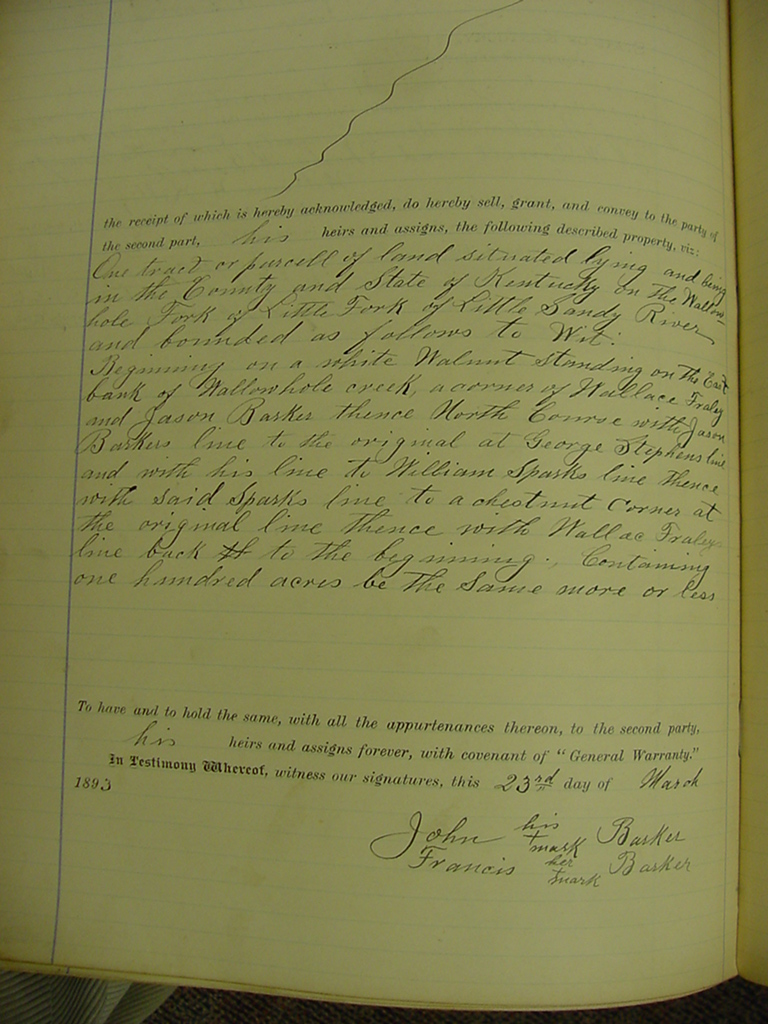 the receipt of which is hereby acknowledged, do hereby sell, grant, and convey to the party of
the second part, his heirs and assigns, the following described property, viz:
One tract or purcell of land situated lying and being
in the County and State of Kentucky on the Wallow-
hole Fork of Little Fork of Little Sandy River
and bounded as follows to Wit:
Beginning on a white Walnut Standing on the East
bank of Wallowhole creek, a corner of Wallace Fraley
and Jason Barker thence North Course with Jason
Barkers line to the original at George Stephens line
and with his line to William Sparks line thence
with said Sparks line to a chestnut Corner at
the original line thence with Wallac Fraleys
line back to the beginning., Containing
one hundred acres be the Same more or less
To have and to hold the same, with all the appurtenances thereon, to the second party,
his heirs and assigns forever, with covenant of "General Warranty."
In Testimony Whereof, witness our signatures, this 23rd day of March
1893
John his + mark Barker
Francis her + mark Barker